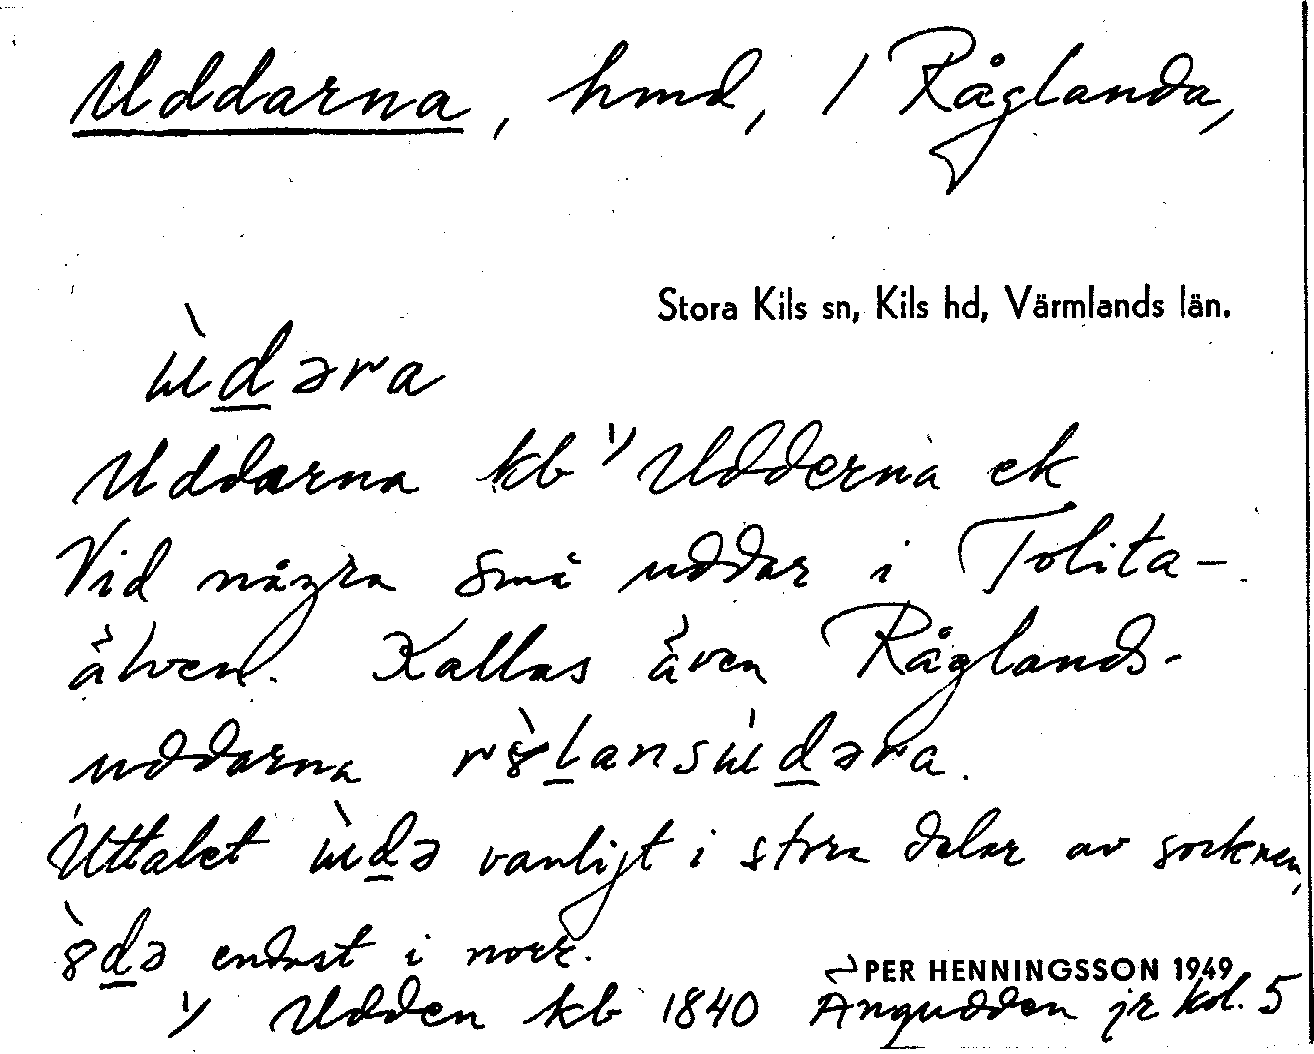 Uddarna, hmd, / Råglanda,
Stora Kils sn, Kils hd, Värmlands län.
ɯ̀d̲əra
Uddarna kb ¹⁾ Udderna ek
Vid några små uddar i Tolita-
älven. Kallas även Råglands-
uddarna r8̀l̲ansɯ̀d̲əra.
Uttalet ɯ̀d̲ə vanligt i stora delar av socknen,
8̀d̲ə endast i norr.
PER HENNINGSSON 1949
¹⁾ Udden kb 1840 Ängudden jr kol. 5